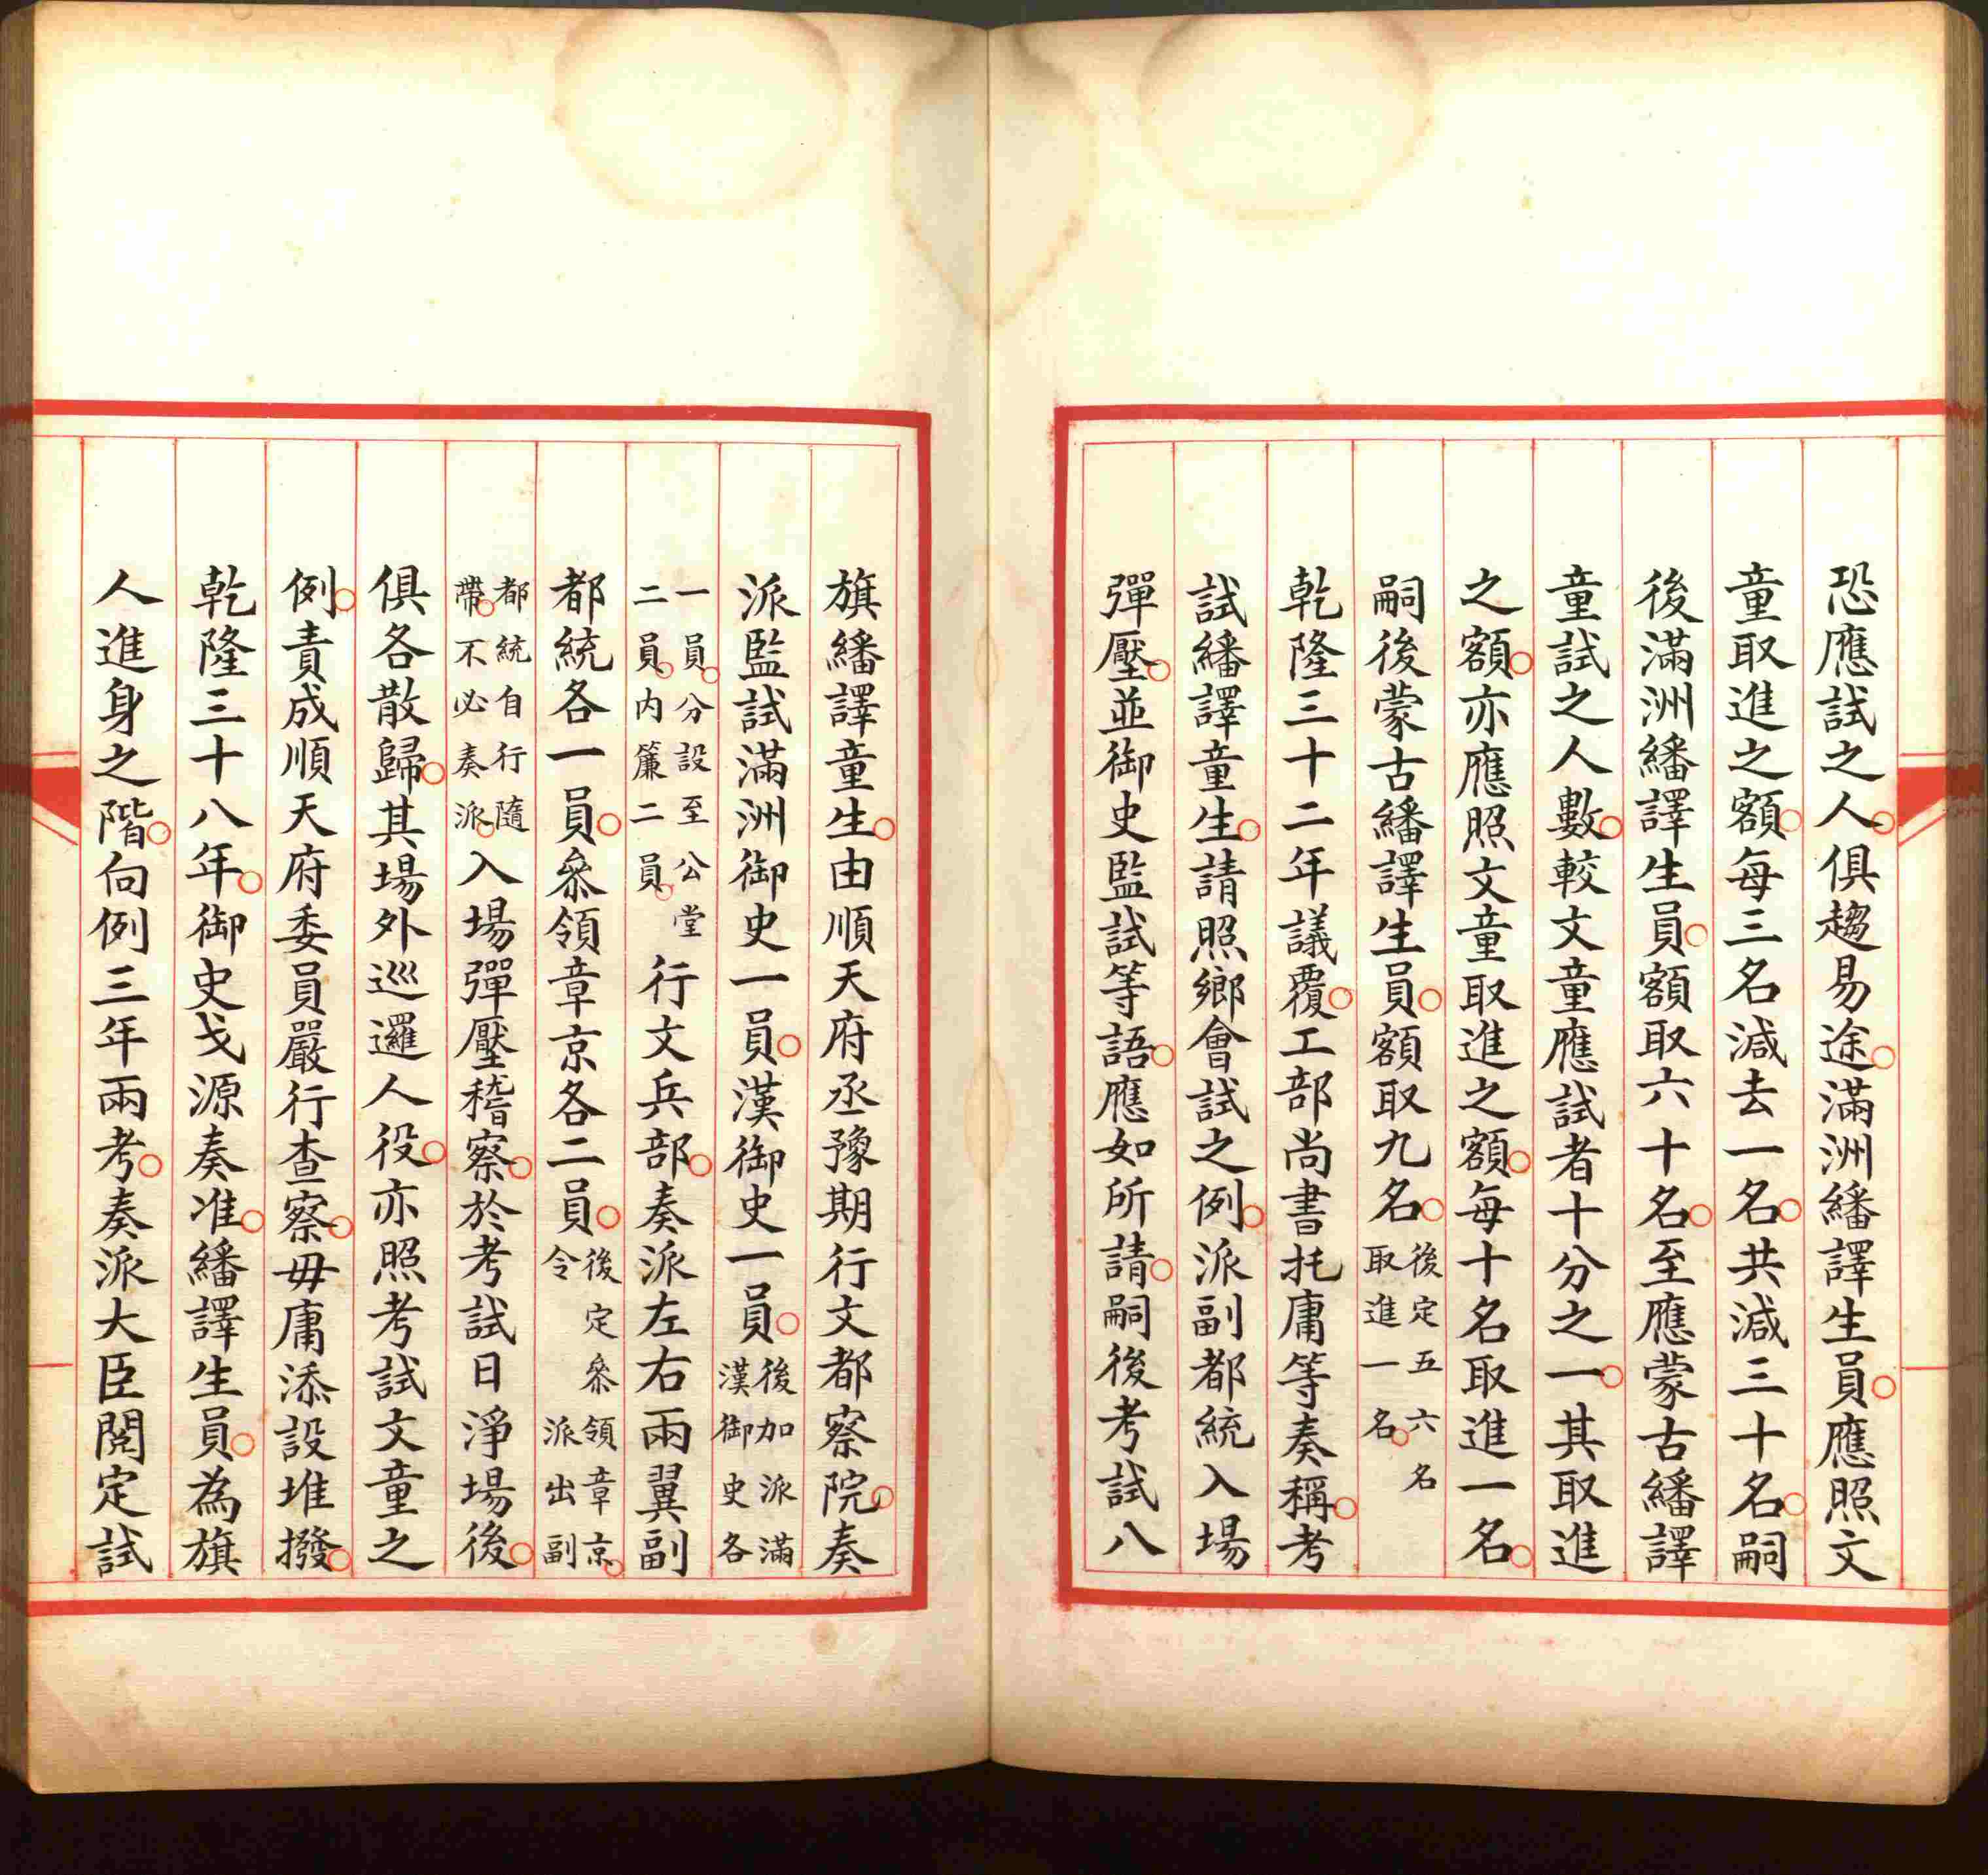 恐應試之人俱趨易途滿洲繙譯生員應照文
童取進之額每三名減去一名共減三十名嗣
後滿洲繙譯生員額取六十名至應蒙古繙譯
童試之人數較文童應試者十分之一其取進
之額亦應照文童取進之額每十名取進一名
嗣後蒙古繙譯生員額取九名後定五六名取進一名
乾隆三十二年議覆工部尚書托庸等奏稱考
試繙譯童生請照鄉會試之例派副都統入場
彈壓並御史監試等語應如所請嗣後考試八
旗繙譯童生由順天府丞豫期行文都察院奏
派監試滿洲御史一員漢御史一員後加派滿漢御史各
一員分設至公堂二員内簾二員行文兵部奏派左右兩翼副
都統各一員叅領章京各二員後定叅領章京令派出副
都統自行隨帶不必奏派入場彈壓稽察於考試日淨場後
俱各散歸其場外巡邏人役亦照考試文童之
例責成順天府委員嚴行查察毋庸添設堆撥
乾隆三十八年御史戈源奏准繙譯生員為旗
人進身之階向例三年兩考奏派大臣閱定試